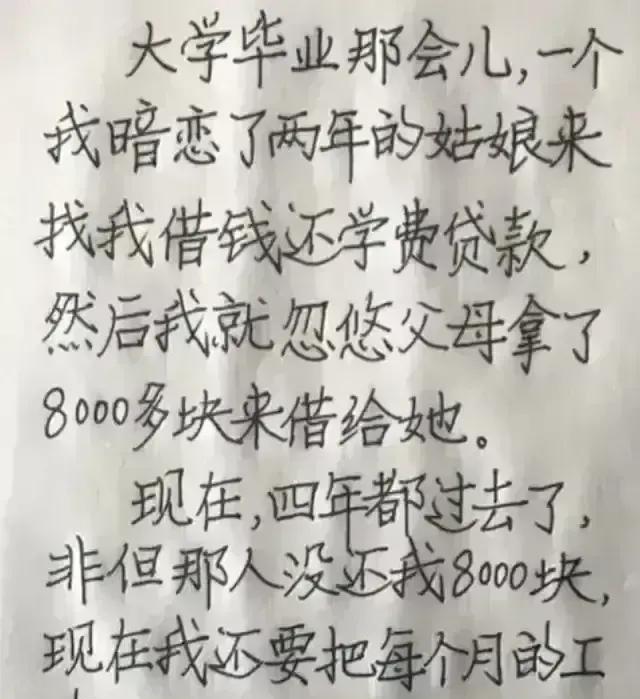 大学毕业那会儿,一个
我暗恋了两年的姑娘来
找我借钱还学费贷款,
然后我就忽悠父母拿了
8000多块来借给她。
现在,四年都过去了,
非但那人没还我8000块,
现在我还要把每个月的工